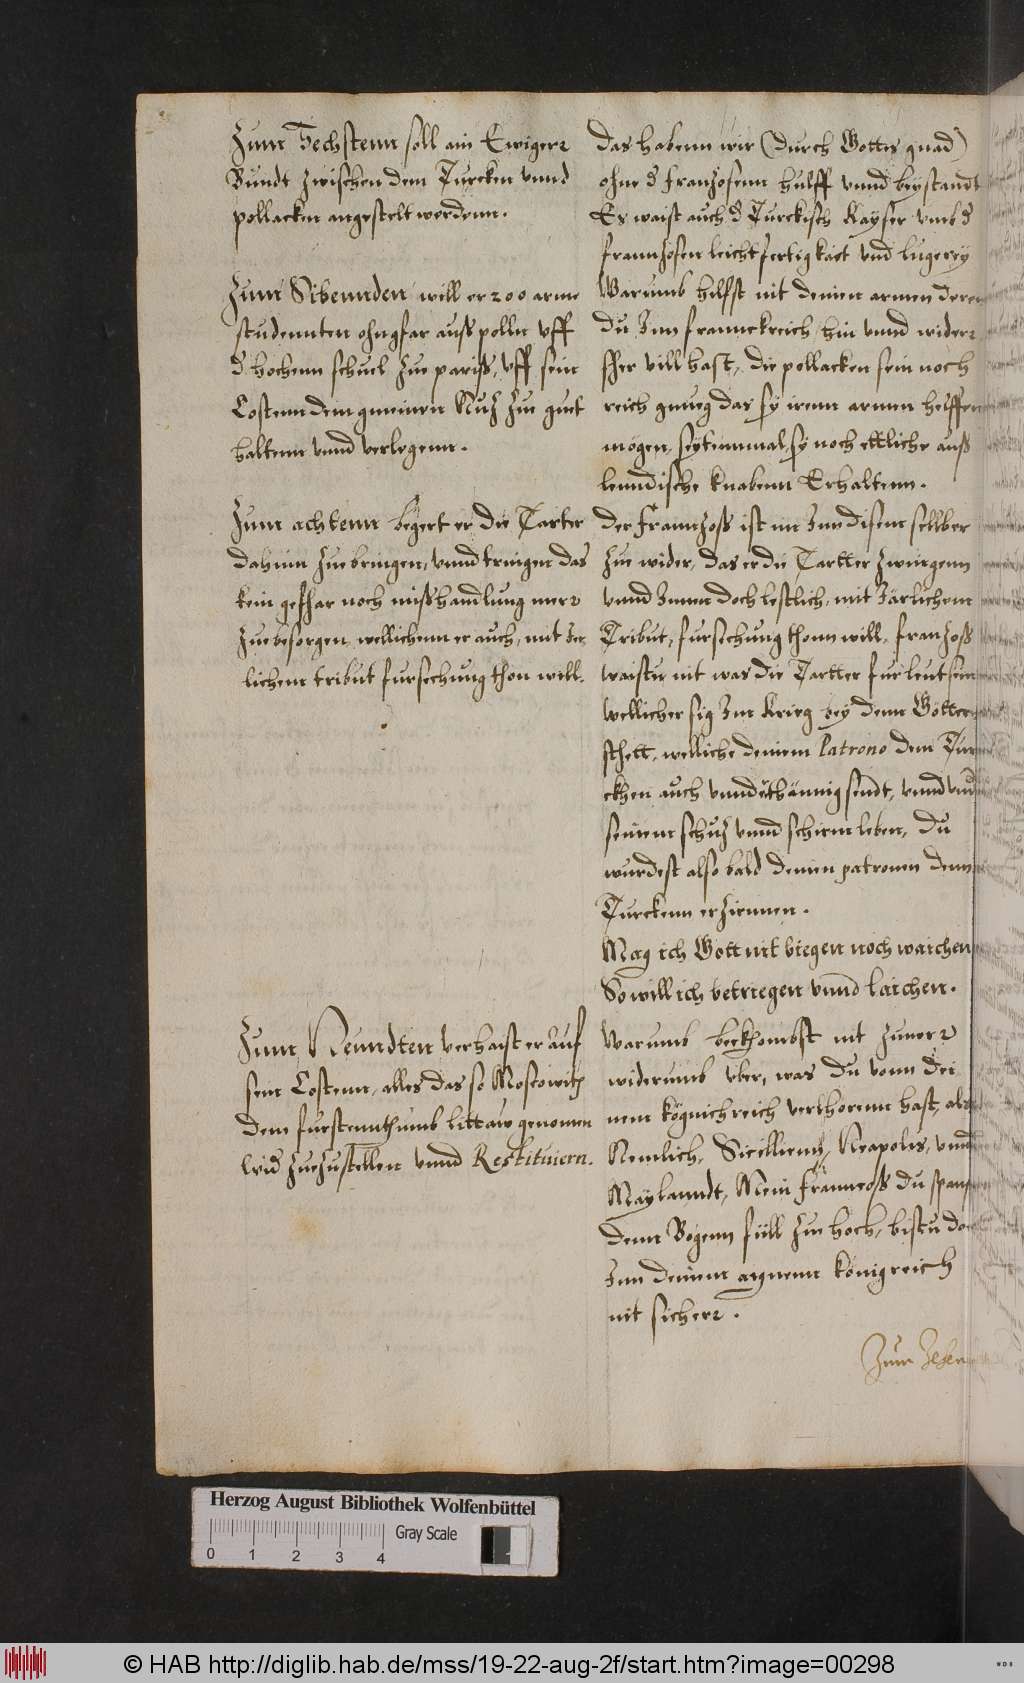 Zum Sechstenn soll ain Ewiger
Bundt zwischen dem Turcken vnnd
pollacken angestelt werdenn.
Zum Sibennden will er 200 arme
studennten ohngfar auß polln vff
d hochenn schuel zue pariß, vff sein
Costenn dem gmeinen Nutz zue guet
haltenn vnnd verlegenn.
Zum achtenn begert er die Tarter
dahinn zuebringen, vnnd tringen das
kein gefhar noch mißhandlung merr
zuebesorgen, wellichenn er auch, mit Jer
lichem tribut fursechung thon will.
Zum Neundten verhaist er auf
sein Costenn, alles das so Moscowith
dem furstennthumb littaw genomen
wid zuezustellen vnnd Restituiern.
Das habenn wir (durch Gottes gnad)
ohne d franzosenn hulff vnnd beystandt
Es waist auch d Turckisch Kayser vmb d
frannzosen leichtfertigkait vnd lugerey
Warumb hilfst nit deinen armen deren
du Inn franneckreich hin vnnd wider
sher vill hast, die pollacken sein noch
reich gnueg das sy irenn armen helffen
mögen, seytemmal sy noch ettliche auß
lenndische knabenn Erhaltenn.
Der frannzoß ist im Inn disem sellber
zue wider, das er die Tartter zwingenn
vnnd Innen doch lestlich, mit Järlichem
Tribut, fursechung thonn will, franzoß
waistu nit was die Tartter fur leut sein
wellicher sig Im Krieg bey denn Göttern
sthett, welliche deinem Patrono dem Tür
ckhen auch vnnderthännig sendt, vnnd vnd
seinem schutz vnnd schirm leben, Du
wurdest also bald deinen patronen denn
Turckenn erzirnnen.
Mag ich Gott nit biegen noch waichen
So will ich betriegen vnnd laichen.
Warumb bekhombst nit zuuorr
widerumb vber, was du vonn dei
nem kögnichreich verlhorenn hast, als
Nemlich, Sicilliennd, Neapolis, vnnd
Maylanndt, Mein franncoß du spanst
denn Bogenn sùll zue hoch, bistu doch
Inn deinem aignenn königreich
nit sicherr.
Zum Zehen
Herzog August Bibliothek Wolfenbüttel
Gray Scale
0 1 2 3 4
© HAB http://diglib.hab.de/mss/19-22-aug-2f/start.htm?image=00298